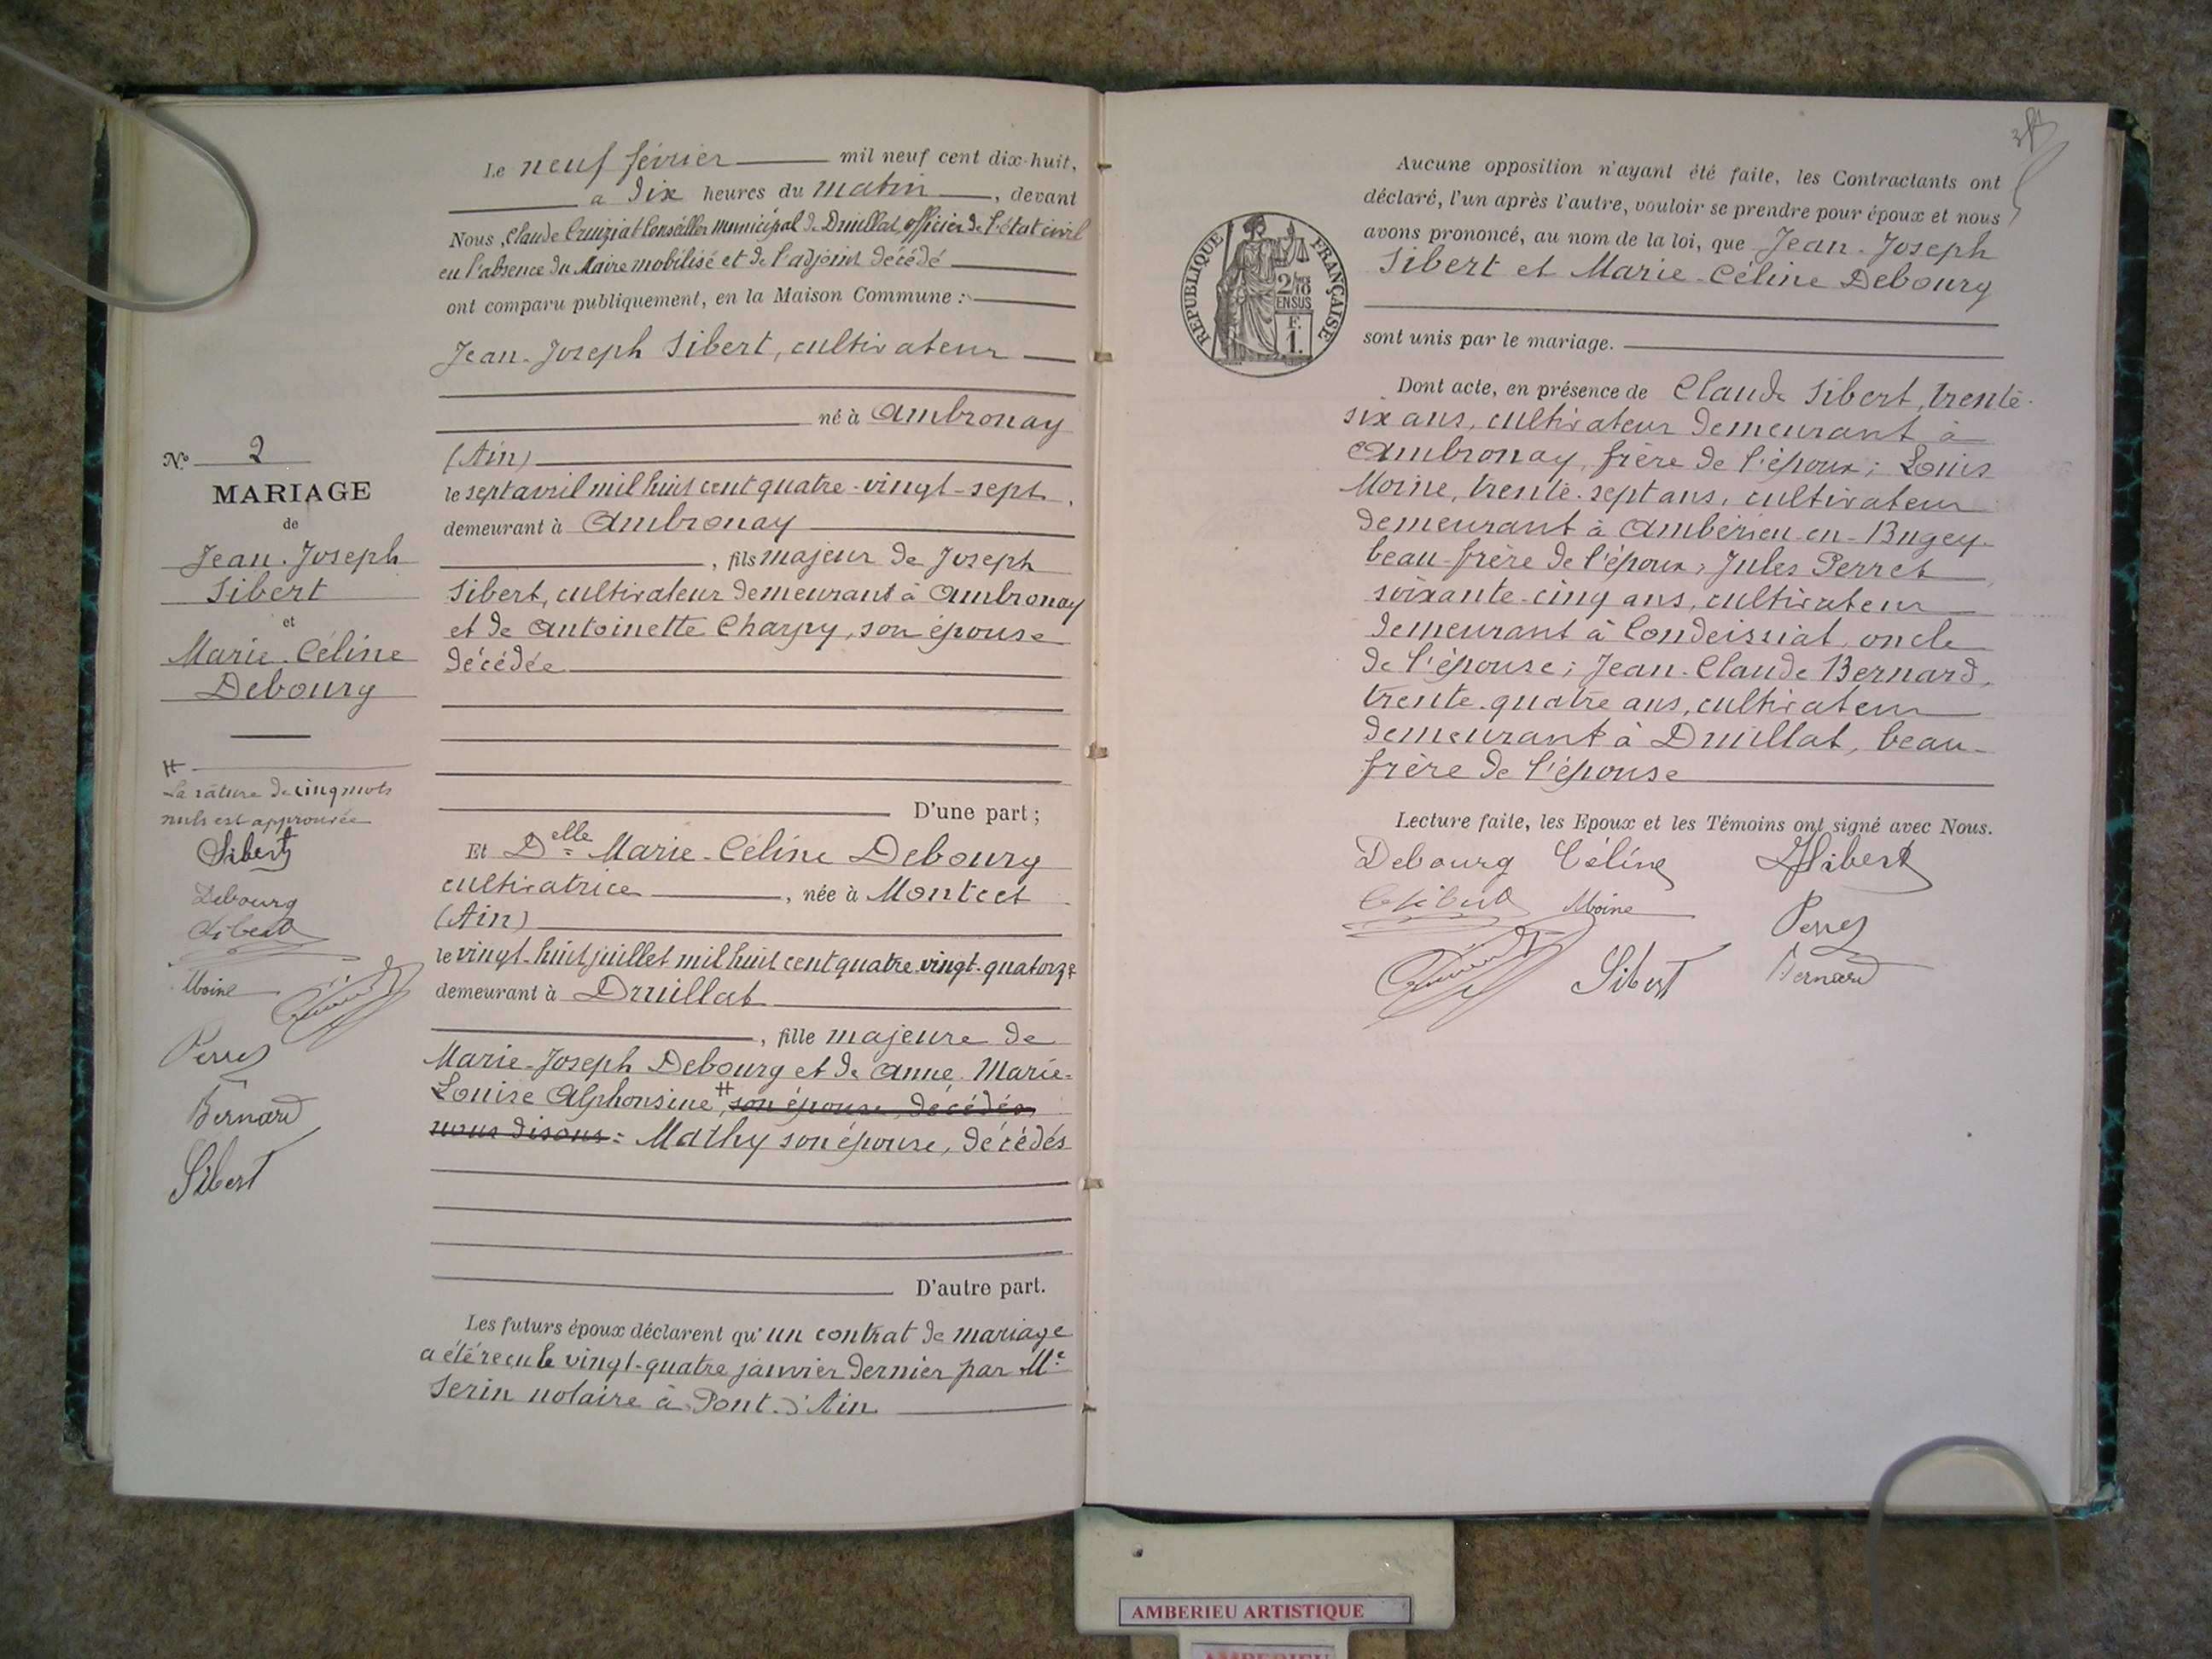 Le neuf février mil neuf cent dix-huit,
à dix heures du matin, devant
Nous, Claude Cruiziat Conseiller municipal de Druillat, officier de l'état civil
en l'absence du Maire mobilisé et de l'adjoint décédé
ont comparu publiquement, en la Maison Commune :
Jean-Joseph Sibert, cultivateur
né à Ambronay
(Ain)
le sept avril mil huit cent quatre-vingt-sept,
demeurant à Ambronay
, fils majeur de Joseph
Sibert, cultivateur demeurant à Ambronay
et de Antoinette Charpy, son épouse
décédée
D'une part ;
Et Delle Marie-Céline Debourg
cultivatrice, née à Montcet
(Ain)
le vingt-huit juillet mil huit cent quatre-vingt-quatorze
demeurant à Druillat
, fille majeure de
Marie-Joseph Debourg et de Anne-Marie-
Louise Alphonsine, son épouse, décédés
nous disons : Mathy son épouse, décédés
D'autre part.
Les futurs époux déclarent qu'un contrat de mariage
a été reçu le vingt-quatre janvier dernier par Me
Serin notaire à Pont-d'Ain
N° 2
MARIAGE
de
Jean-Joseph
Sibert
et
Marie-Céline
Debourg
La rature de cinq mots
nuls est approuvée
Sibert
Debourg
Sibert
Moine
Perret
Bernard
Sibert
RÉPUBLIQUE FRANÇAISE
2/10
EN SUS
F.
1.
Aucune opposition n'ayant été faite, les Contractants ont
déclaré, l'un après l'autre, vouloir se prendre pour époux et nous
avons prononcé, au nom de la loi, que Jean-Joseph
Sibert et Marie-Céline Debourg
sont unis par le mariage.
Dont acte, en présence de Claude Sibert, trente-
six ans, cultivateur demeurant à
Ambronay, frère de l'époux ; Louis
Moine, trente-sept ans, cultivateur
demeurant à Ambérieu-en-Bugey
beau-frère de l'époux, Jules Perret
soixante-cinq ans, cultivateur
demeurant à Condeissiat, oncle
de l'épouse ; Jean-Claude Bernard,
trente-quatre ans, cultivateur
demeurant à Druillat, beau-
frère de l'épouse
Lecture faite, les Epoux et les Témoins ont signé avec Nous.
Debourg Céline Sibert
Moine Perret
Sibert Bernard
AMBERIEU ARTISTIQUE
AMBERIEU